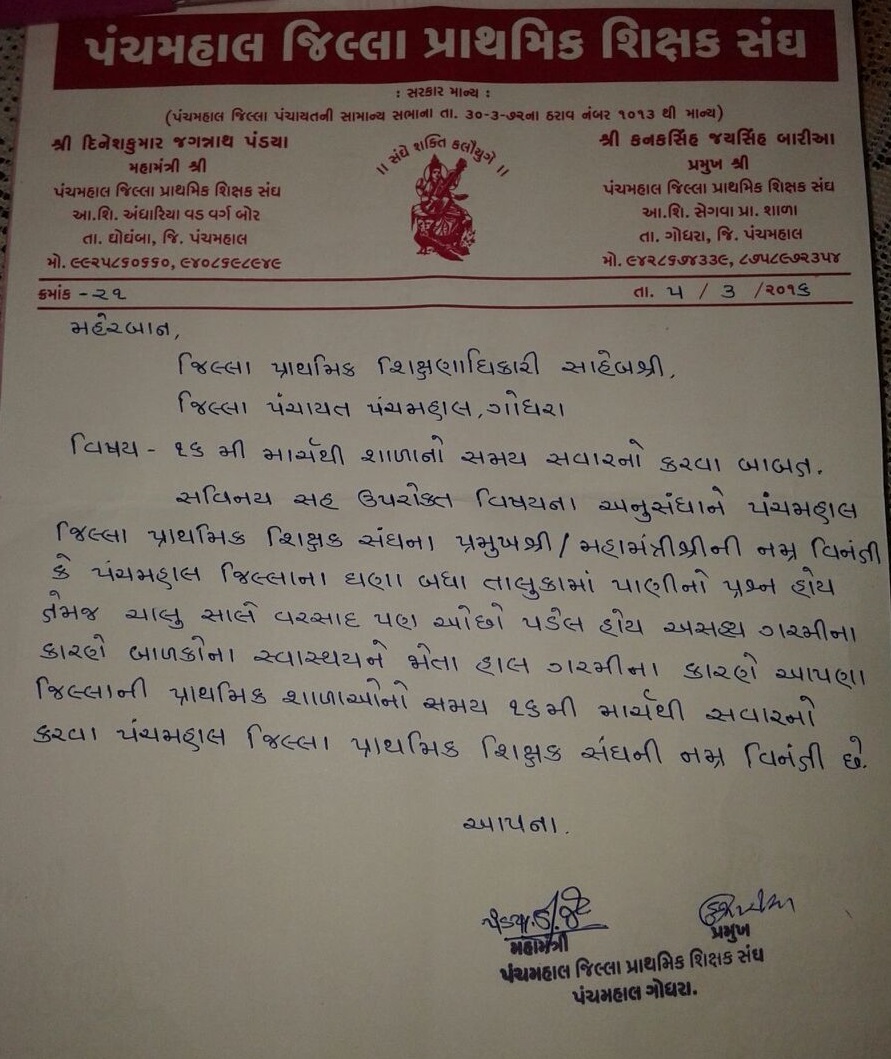 પંચમહાલ જિલ્લા પ્રાથમિક શિક્ષક સંઘ
: સરકાર માન્ય :
(પંચમહાલ જિલ્લા પંચાયતની સામાન્ય સભાના તા. ૩૦-૩-૭૨ના ઠરાવ નંબર ૧૦૧૩ થી માન્ય)
શ્રી દિનેશકુમાર જગન્નાથ પંડયા
મહામંત્રી શ્રી
પંચમહાલ જિલ્લા પ્રાથમિક શિક્ષક સંઘ
આ.શિ. અંધારિયા વડ વર્ગ બોર
તા. ઘોઘંબા, જિ. પંચમહાલ
મો. ૯૯૨૫૮૬૦૬૬૦, ૯૪૦૮૬૯૮૯૪૯
|| સંઘે શક્તિ કલૌયુગે ||
શ્રી કનકસિંહ જયસિંહ બારીઆ
પ્રમુખ શ્રી
પંચમહાલ જિલ્લા પ્રાથમિક શિક્ષક સંઘ
આ.શિ. સેગવા પ્રા. શાળા
તા. ગોધરા, જિ. પંચમહાલ
મો. ૯૪૨૮૬૭૪૩૩૯, ૮૭૫૮૯૭૨૩૫૪
ક્રમાંક - ૨૧
તા. ૫ / ૩ /૨૦૧૬
મહેરબાન,
જિલ્લા પ્રાથમિક શિક્ષણાધિકારી સાહેબશ્રી,
જિલ્લા પંચાયત પંચમહાલ, ગોધરા
વિષય - ૧૬ મી માર્ચથી શાળાનો સમય સવારનો કરવા બાબત.
સવિનય સહ ઉપરોક્ત વિષયના અનુસંધાને પંચમહાલ
જિલ્લા પ્રાથમિક શિક્ષક સંઘના પ્રમુખશ્રી / મહામંત્રીશ્રીની નમ્ર વિનંતી
કે પંચમહાલ જિલ્લાના ઘણા બધા તાલુકામાં પાણીનો પ્રશ્ન હોય
તેમજ ચાલુ સાલે વરસાદ પણ ઓછો પડેલ હોય અસહ્ય ગરમીના
કારણે બાળકોના સ્વાસ્થયને જોતા હાલ ગરમીના કારણે આપણા
જિલ્લાની પ્રાથમિક શાળાઓનો સમય ૧૬મી માર્ચથી સવારનો
કરવા પંચમહાલ જિલ્લા પ્રાથમિક શિક્ષક સંઘની નમ્ર વિનંતી છે.
આપના.
મહામંત્રી
પ્રમુખ
પંચમહાલ જિલ્લા પ્રાથમિક શિક્ષક સંઘ
પંચમહાલ ગોધરા.